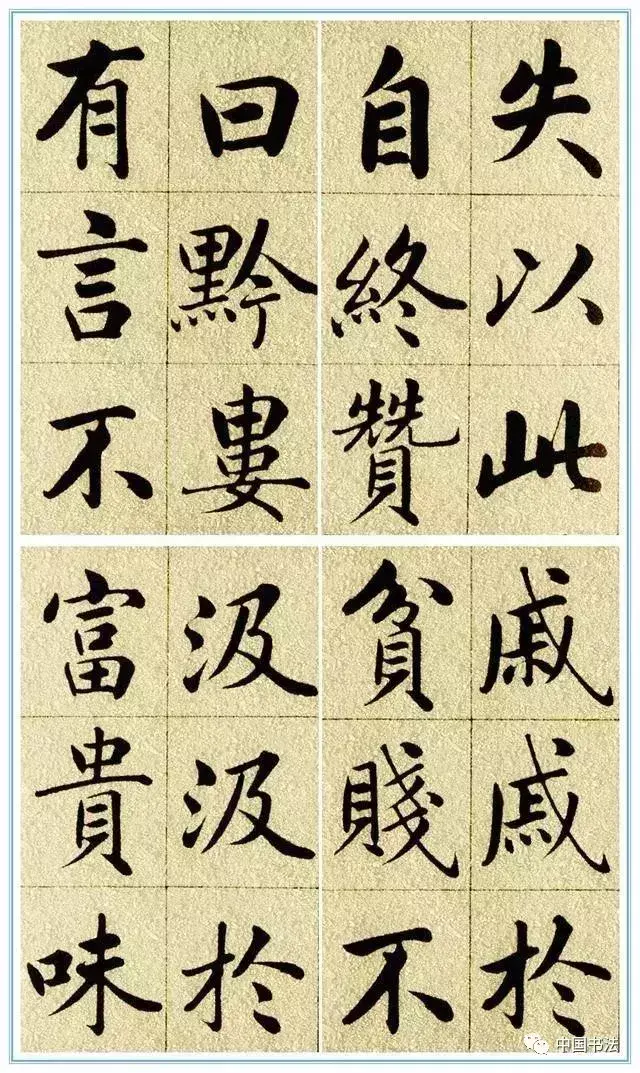 失以此
自終贊
曰黔婁
有言不
戚戚於
貧賤不
汲汲於
富貴味
中国书法